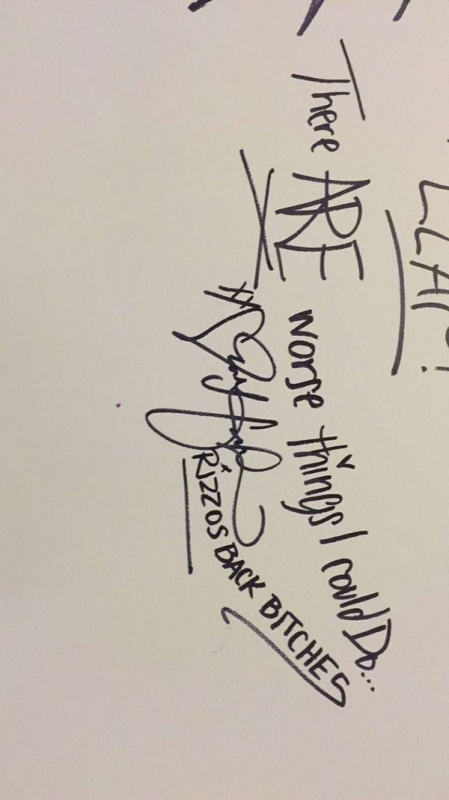 There ARE worse things I could Do...
RIZZOS BACK BITCHES